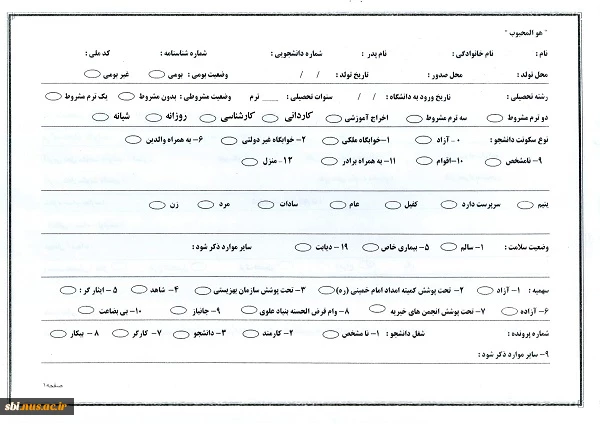 " هو المحبوب "
نام : نام خانوادگی : نام پدر : شماره دانشجویی : شماره شناسنامه : کد ملی :
محل تولد : محل صدور : تاریخ تولد : / / وضعیت بومی : بومی غیر بومی
رشته تحصیلی : تاریخ ورود به دانشگاه : / / سنوات تحصیلی : ___ ترم وضعیت مشروطی : بدون مشروط یک ترم مشروط
دو ترم مشروط سه ترم مشروط اخراج آموزشی کاردانی کارشناسی روزانه شبانه
نوع سکونت دانشجو : ۰- آزاد ۱-خوابگاه ملکی ۲- خوابگاه غیر دولتی ۶- به همراه والدین
۹- نامشخص ۱۰-اقوام ۱۱- به همراه برادر ۱۲- منزل
یتیم سرپرست دارد کفیل عام سادات مرد زن
وضعیت سلامت : ۱- سالم ۵- بیماری خاص ۱۹- دیابت سایر موارد ذکر شود :
سهمیه : ۱- آزاد ۲- تحت پوشش کمیته امداد امام خمینی (ره) ۳- تحت پوشش سازمان بهزیستی ۴- شاهد ۵- ایثار گر :
۶- آزاده ۷- تحت پوشش انجمن های خیریه ۸- وام قرض الحسنه بنیاد علوی ۹- جانباز ۱۰- بی بضاعت
شماره پرونده : شغل دانشجو : ۱- نا مشخص ۲- کارمند ۳- دانشجو ۷- کارگر ۸- بیکار
۹- سایر موارد ذکر شود :
صفحه۱
sbi.nus.ac.ir